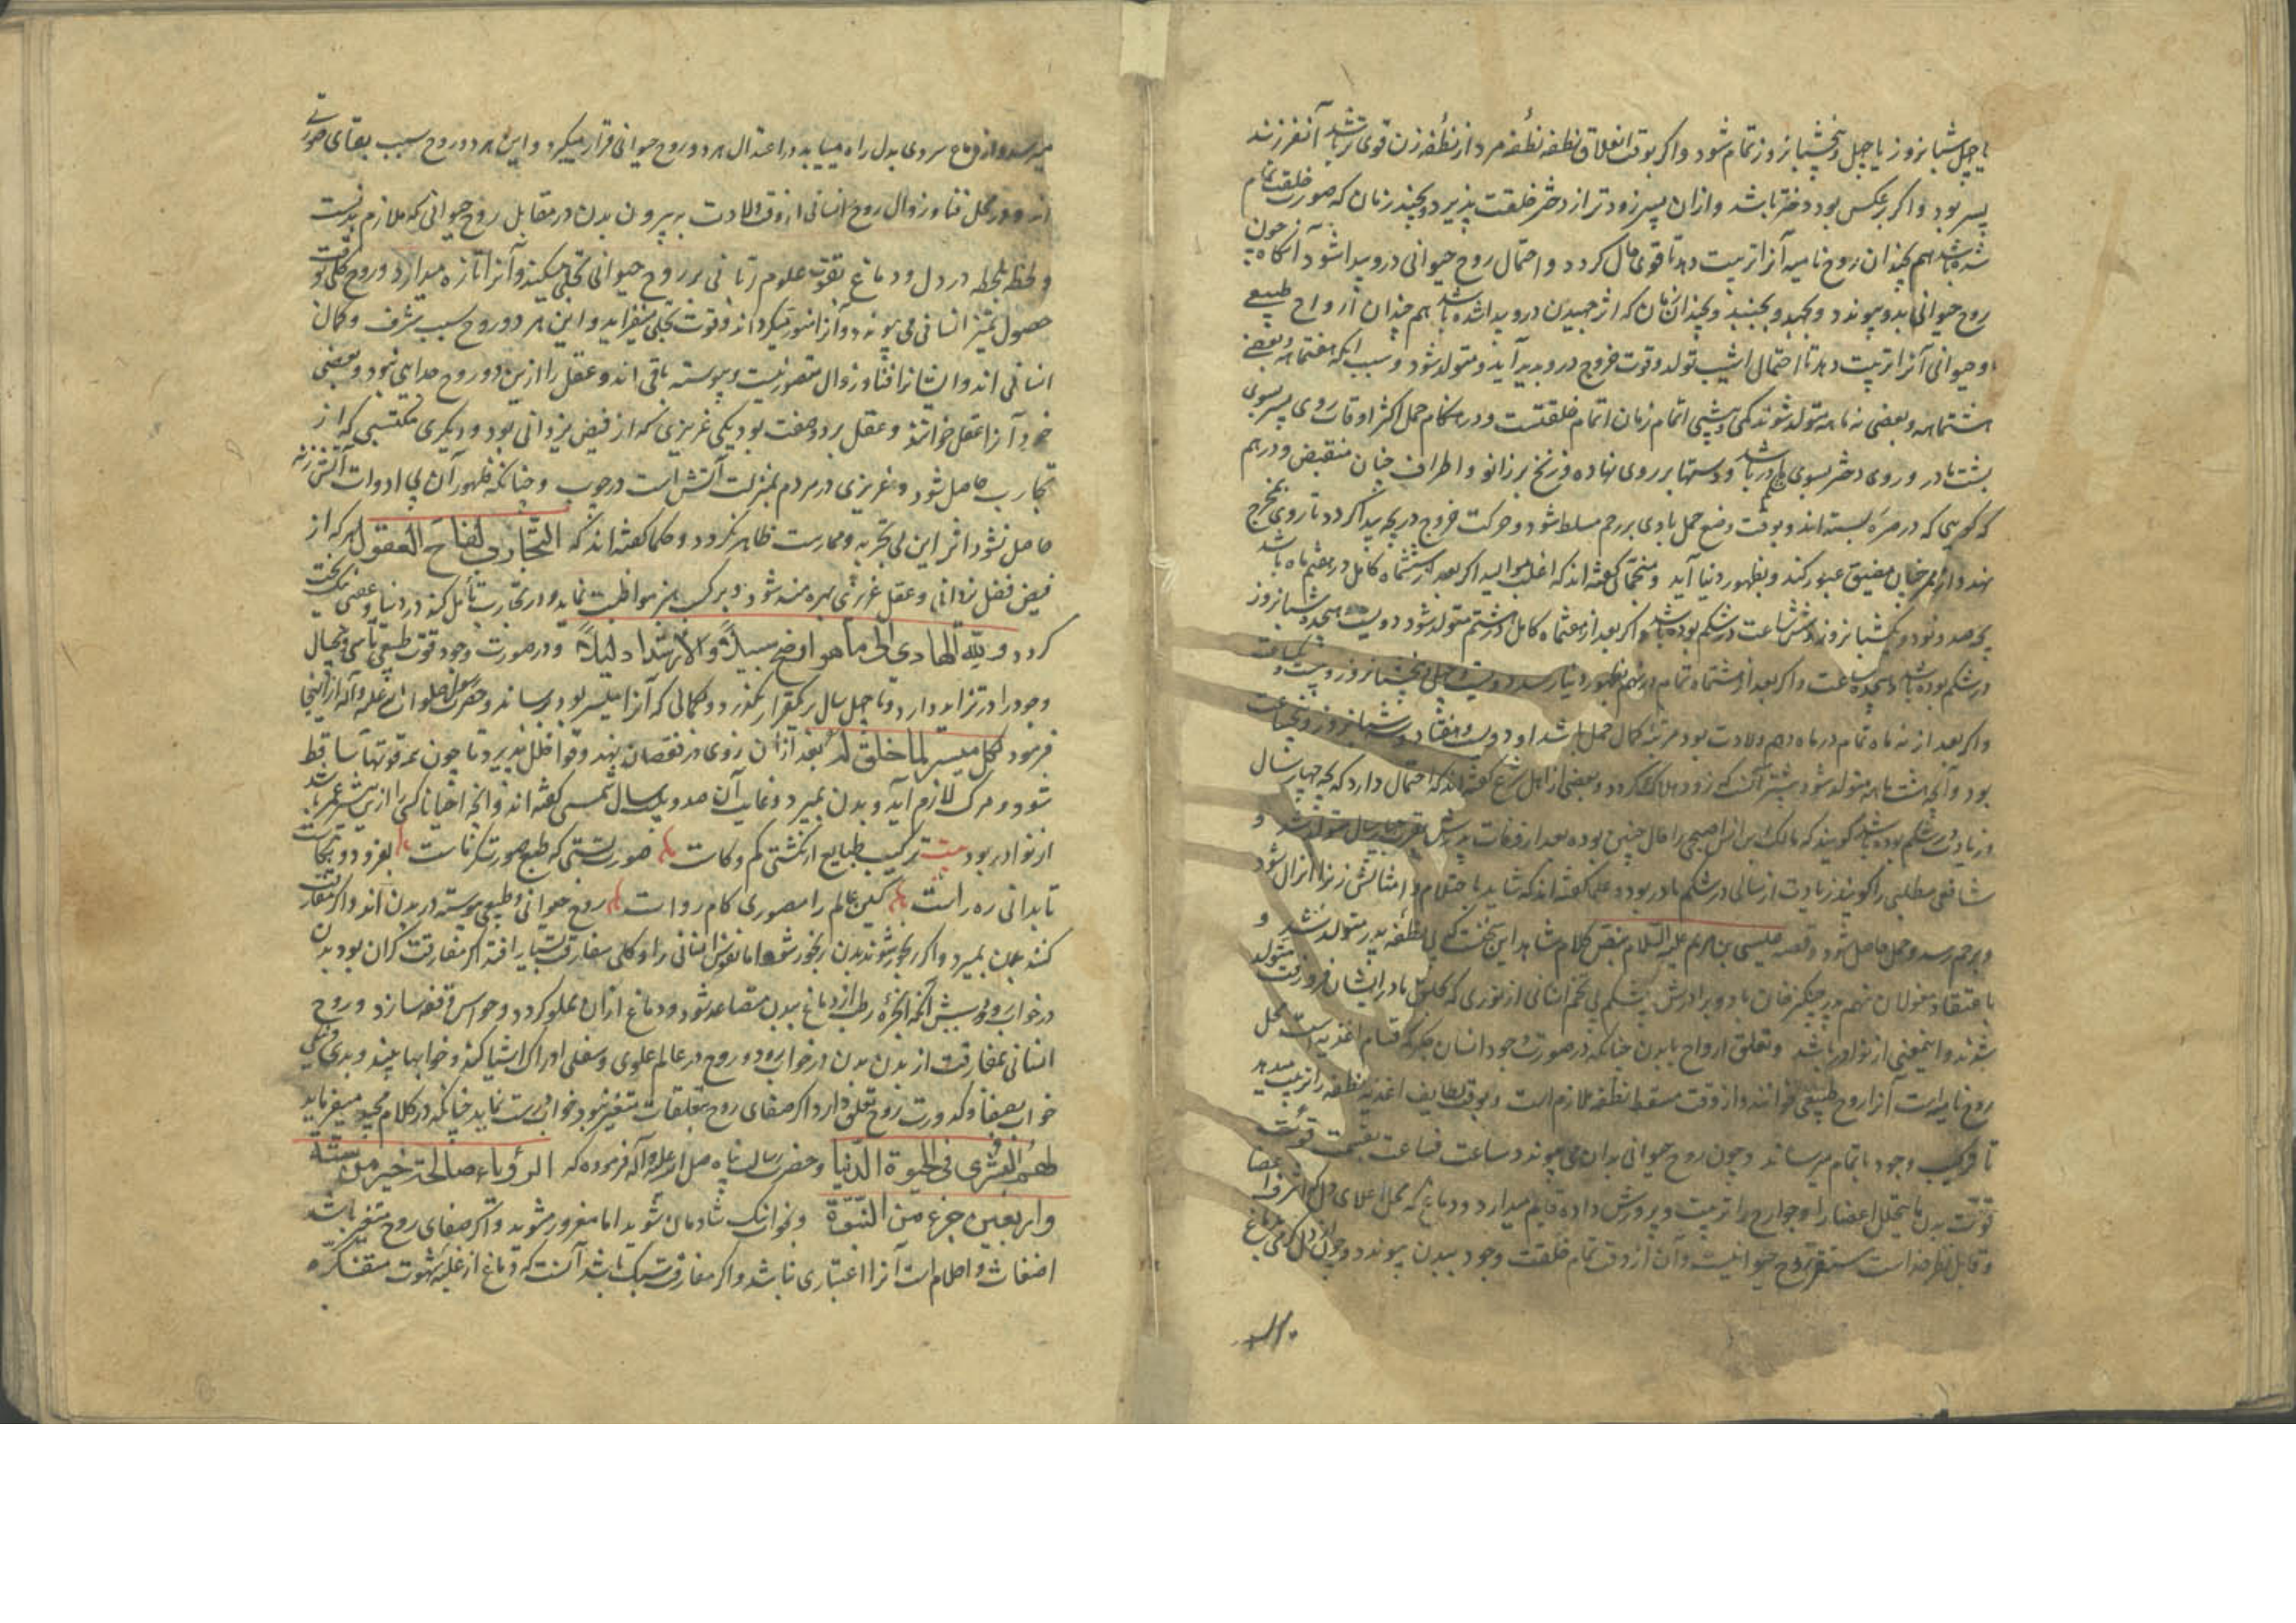 یا چهل شبانروز یا چهل و پنج شبانروز تمام شود و اگر بوقت انغلاق نطفه نطفه مرد از نطفه زن قوی تر باشد آن فرزند
پسر بود و اگر برعکس بود دختر باشد و ازان پسر زودتر از دختر خلقت پذیرد و بچند زمان که صورت خلقت تمام
شده باشد هم چندان روح نامیه آنرا تربیت دهد تا قوی حال گردد و احتمال روح حیوانی درو پیدا شود آنگاه چون
روح حیوانی بدو پیوندد و بجهد و بجنبد و بچندان زمان که اثر جهیدن درو پیدا شده باشد هم چندان ارواح طبیعی
و حیوانی آنرا تربیت دهد تا احتمال تولد و قوت خروج درو پدید آید و متولد شود و سبب آنکه هفتماهه و بعضی
هشتماهه و بعضی نه ماهه متولد شوند کمی و بیشی اتمام زمان اتمام خلقتست و در هنگام حمل اکثر اوقات روی پسر بسوی
پشت مادر و روی دختر بسوی باشد و دستها بر روی نهاده و زنخ بر زانو و اطراف چنان منقبض و درهم
که گویی که در صره بسته اند و بوقت وضع حمل بادی بر رحم مسلط شود و حرکت خروج در بچه پیدا گردد تا روی بمخرج
نهد و از ممر چنان مضیق عبور کند و بظهور دنیا آید و منجمان گفته اند که اغلب موالید اگر بعد از ششماه کامل در هفتم ماه باشد
یکصد و نود و یکشبانروز و شش ساعت در شکم بوده باشد و اگر بعد از هفتماه کامل در هشتم متولد شود دویست هجده شبانروز
در شکم بوده باشد و هجده ساعت و اگر بعد از هشتماه تمام در نهم بظهور دنیا رسد دویست و چهل و پنج شبانروز و بیست و یکساعت
و اگر بعد از نه ماه تمام در ماه دهم ولادت بود مرتبه کمال حمل باشد او دویست و هفتاد و سه شبانروز و پنجساعت
بود و آنچه هشت ماهه متولد شود بیشتر آنست که زود هلاک گردد و بعضی از اهل شرع گفته اند که احتمال دارد که بچه چهار سال
و زیادت در شکم بوده باشد گویند که مالک بن انس اصبحی را حال چنین بوده بعد از وفات پدرش بقرب چهار سال متولد شد و
شافعی مطلبی را گویند زیادت از سالی در شکم مادر بود و علما گفته اند که شاید باحتلام و امثالش زنرا انزال شود
و برحم رسد و حمل حاصل شود و قصه عیسی بن مریم علیه السلام بنص کلام شاهد این سخنست که بی نطفه پدر متولد شد و
باعتقاد مغولان نهم پدر چنگیز خان با دو برادرش بیکشکم بی تخم انسانی از نوری که بحلق مادر ایشان فرو رفت متولد
شدند و اینمعنی از نوادر باشد و تعلق ارواح بابدن چنانکه در صورت وجود انسان جگر که قسام اغذیه است محل
روح نامیه است آنرا روح طبیعی خوانند و از وقت مسقط نطفه ملازم است و بوقت لطایف اغذیه نطفه را تربیت میدهد
تا ترکیب وجود باتمام میرساند و چون روح حیوانی بدان می پیوندد ساعت فساعت بقسمت قوت
قوت بدن ما یتحلل اعضا را و جوارح را تربیت و پرورش داده قایم میدارد و دماغ که محل اعلای دل که اشرف اعضا
و قابل نظر خداست مستقر روح حیوانیست و آن از وقت تمام خلقت وجود ببدن پیوندد و حرارت از دل گرمی بدماغ
میرسد و از دماغ سردی بدل راه مییابد در اعتدال هر دو روح حیوانی قرار میگیرد و این هر دو روح سبب بقای صورتی
اند و در محل فنا و زوال روح انسانی از وقت ولادت به بیرون بدن در مقابل روح حیوانی که ملازم بدنست
و لحظه بلحظه در دل و دماغ بقوت علوم ربانی بر روح حیوانی تجلی میکند و آنرا تازه میدارد و روح کلی بوقت
حصول تمیز انسانی می پیوندد و آنرا منور میگرداند و قوت تجلی میفزاید و این هر دو روح سبب شرف و کمال
انسانی اند و ایشانرا فنا و زوال متصور نیست و پیوسته باقی اند و عقل را ازین دو روح جدایی نبود و بعضی
خود آنرا عقل خوانند و عقل بر دو صفت بود یکی غریزی که از فیض یزدانی بود و دیگری مکتسبی که از
تجارب حاصل شود و غریزی در مردم بمنزلت آتش است در چوب و چنانکه ظهور آن بی ادوات آتش زنه
حاصل نشود اثر این بی تجربه و ممارست ظاهر نگردد و حکما گفته اند که التجارب لقاح العقول هر که از
فیض فضل یزدانی و عقل غریزی بهره مند شود و بر کسب هنر مواظبت نماید و در تجارب تأمل کند در دنیا و عقبی نیکبخت
گردد و لله الهادی الی ما هو اوضح سبیلا و الارشد دلیلا و در صورت وجود قوت طبیعی تا سی و پنجسال
وجود را در تزاید دارد و تا چهل سال بر یکقرار بگذرد و کمالی که آنرا میسر بود برساند و حضرت رسول صلوات الله علیه و آله از اینجا
فرمود کل میسر لما خلق له بعد ازان روی در نقصان نهد و قوا خلل پذیرد تا چون همه قوتها ساقط
شود و مرگ لازم آید و بدن بمیرد و غایت آن صد و بیست سال شمسی گفته اند و آنچه احیانا کسی را ازین بیشتر عمر باشد
از نوادر بود بیت ترکیب طبایع ار نگشتی کم و کاست صورت بستی که طبع صورتگر ماست بفزود و بکاست
تا بدانی ره راست کین عالم را مصوری کام رواست روح حیوانی و طبیعی پیوسته در بدن اند و اگر مفارقت
کنند بدن بمیرد و اگر رنجور شوند بدن رنجور شود اما نفوس انسانی را و کلی مفارقت بسیار افتد اگر مفارقت گران بود بدن
در خواب رود و سببش آنکه ابخره رطب از دماغ ببدن متصاعد شود و دماغ ازان مملو گردد و حواس موقوف سازد و روح
انسانی بمفارقت از بدن بدن در خواب رود و روح در عالم علوی و سفلی ادراک اشیا کند و خوابها بیند و بدی و نیکی
خواب بصفا و کدورت روح تعلق دارد اگر صفای روح بتعلقات متغیر نبود خواب درست نماید چنانکه در کلام مجید میفرماید
لهم البشری فی الحیوة الدنیا و حضرت رسالت پناه صلی الله علیه و آله فرموده که الرؤیاء صالحة خیر من ستة
و اربعین جزء من النبوة و بخواب نیک شادمان شوید اما مغرور مشوید و اگر صفای روح متغیر باشد
اضغاث و احلام است آنرا اعتباری نباشد و اگر مفارقت سبک باشد آنست که دماغ از غلبه شهوت متفکره